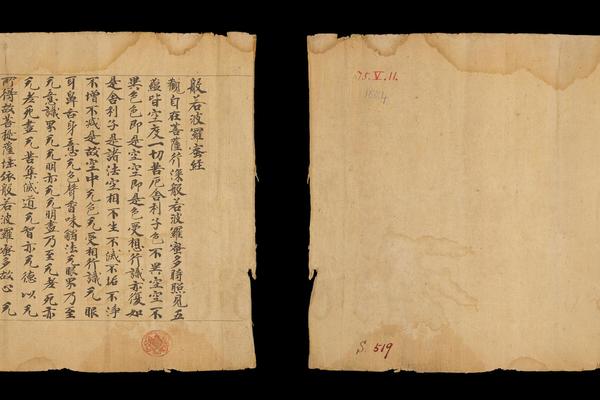 般若波羅蜜経
觀自在菩薩行深般若波羅蜜多時照見五
蘊皆空度一切苦厄舍利子色不異空空不
異色色即是空空即是色受想行識亦復如
是舍利子是諸法空相不生不滅不垢不淨
不增不減是故空中无色无受想行識无眼
耳鼻舌身意无色聲香味觸法无眼界乃至
无意識界无无明亦无无明盡乃至无老死亦
无老死盡无苦集滅道无智亦无德以无
所得故菩提薩埵依般若波羅蜜多故心无
75.V.11.
S. 519